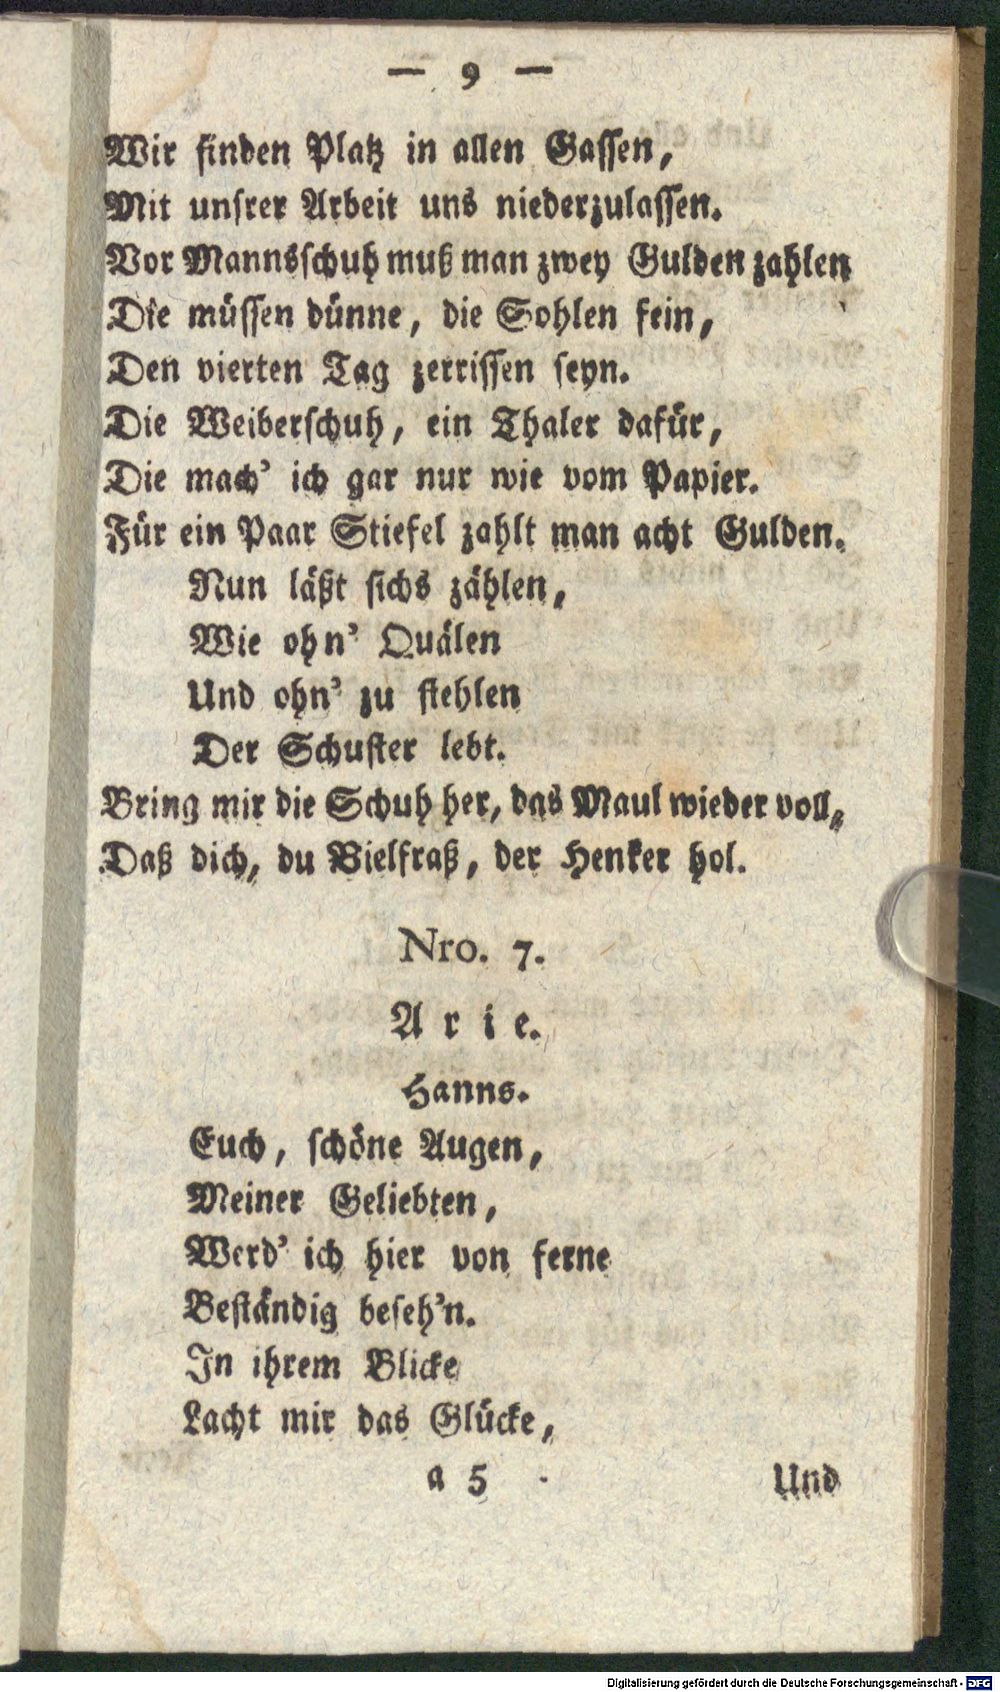 — 9 —
Wir finden Platz in allen Gassen,
Mit unsrer Arbeit uns niederzulassen.
Vor Mannsschuh muß man zwey Gulden zahlen
Die müssen dünne, die Sohlen fein,
Den vierten Tag zerrissen seyn.
Die Weiberschuh, ein Thaler dafür,
Die mach' ich gar nur wie vom Papier.
Für ein Paar Stiefel zahlt man acht Gulden.
Nun läßt sichs zählen,
Wie ohn' Quälen
Und ohn' zu stehlen
Der Schuster lebt.
Bring mir die Schuh her, das Maul wieder voll,
Daß dich, du Vielfraß, der Henker hol.
Nro. 7.
Arie.
Hanns.
Euch, schöne Augen,
Meiner Geliebten,
Werd' ich hier von ferne
Beständig beseh'n.
In ihrem Blicke
Lacht mir das Glücke,
a 5
Und
Digitalisierung gefördert durch die Deutsche Forschungsgemeinschaft - DFG